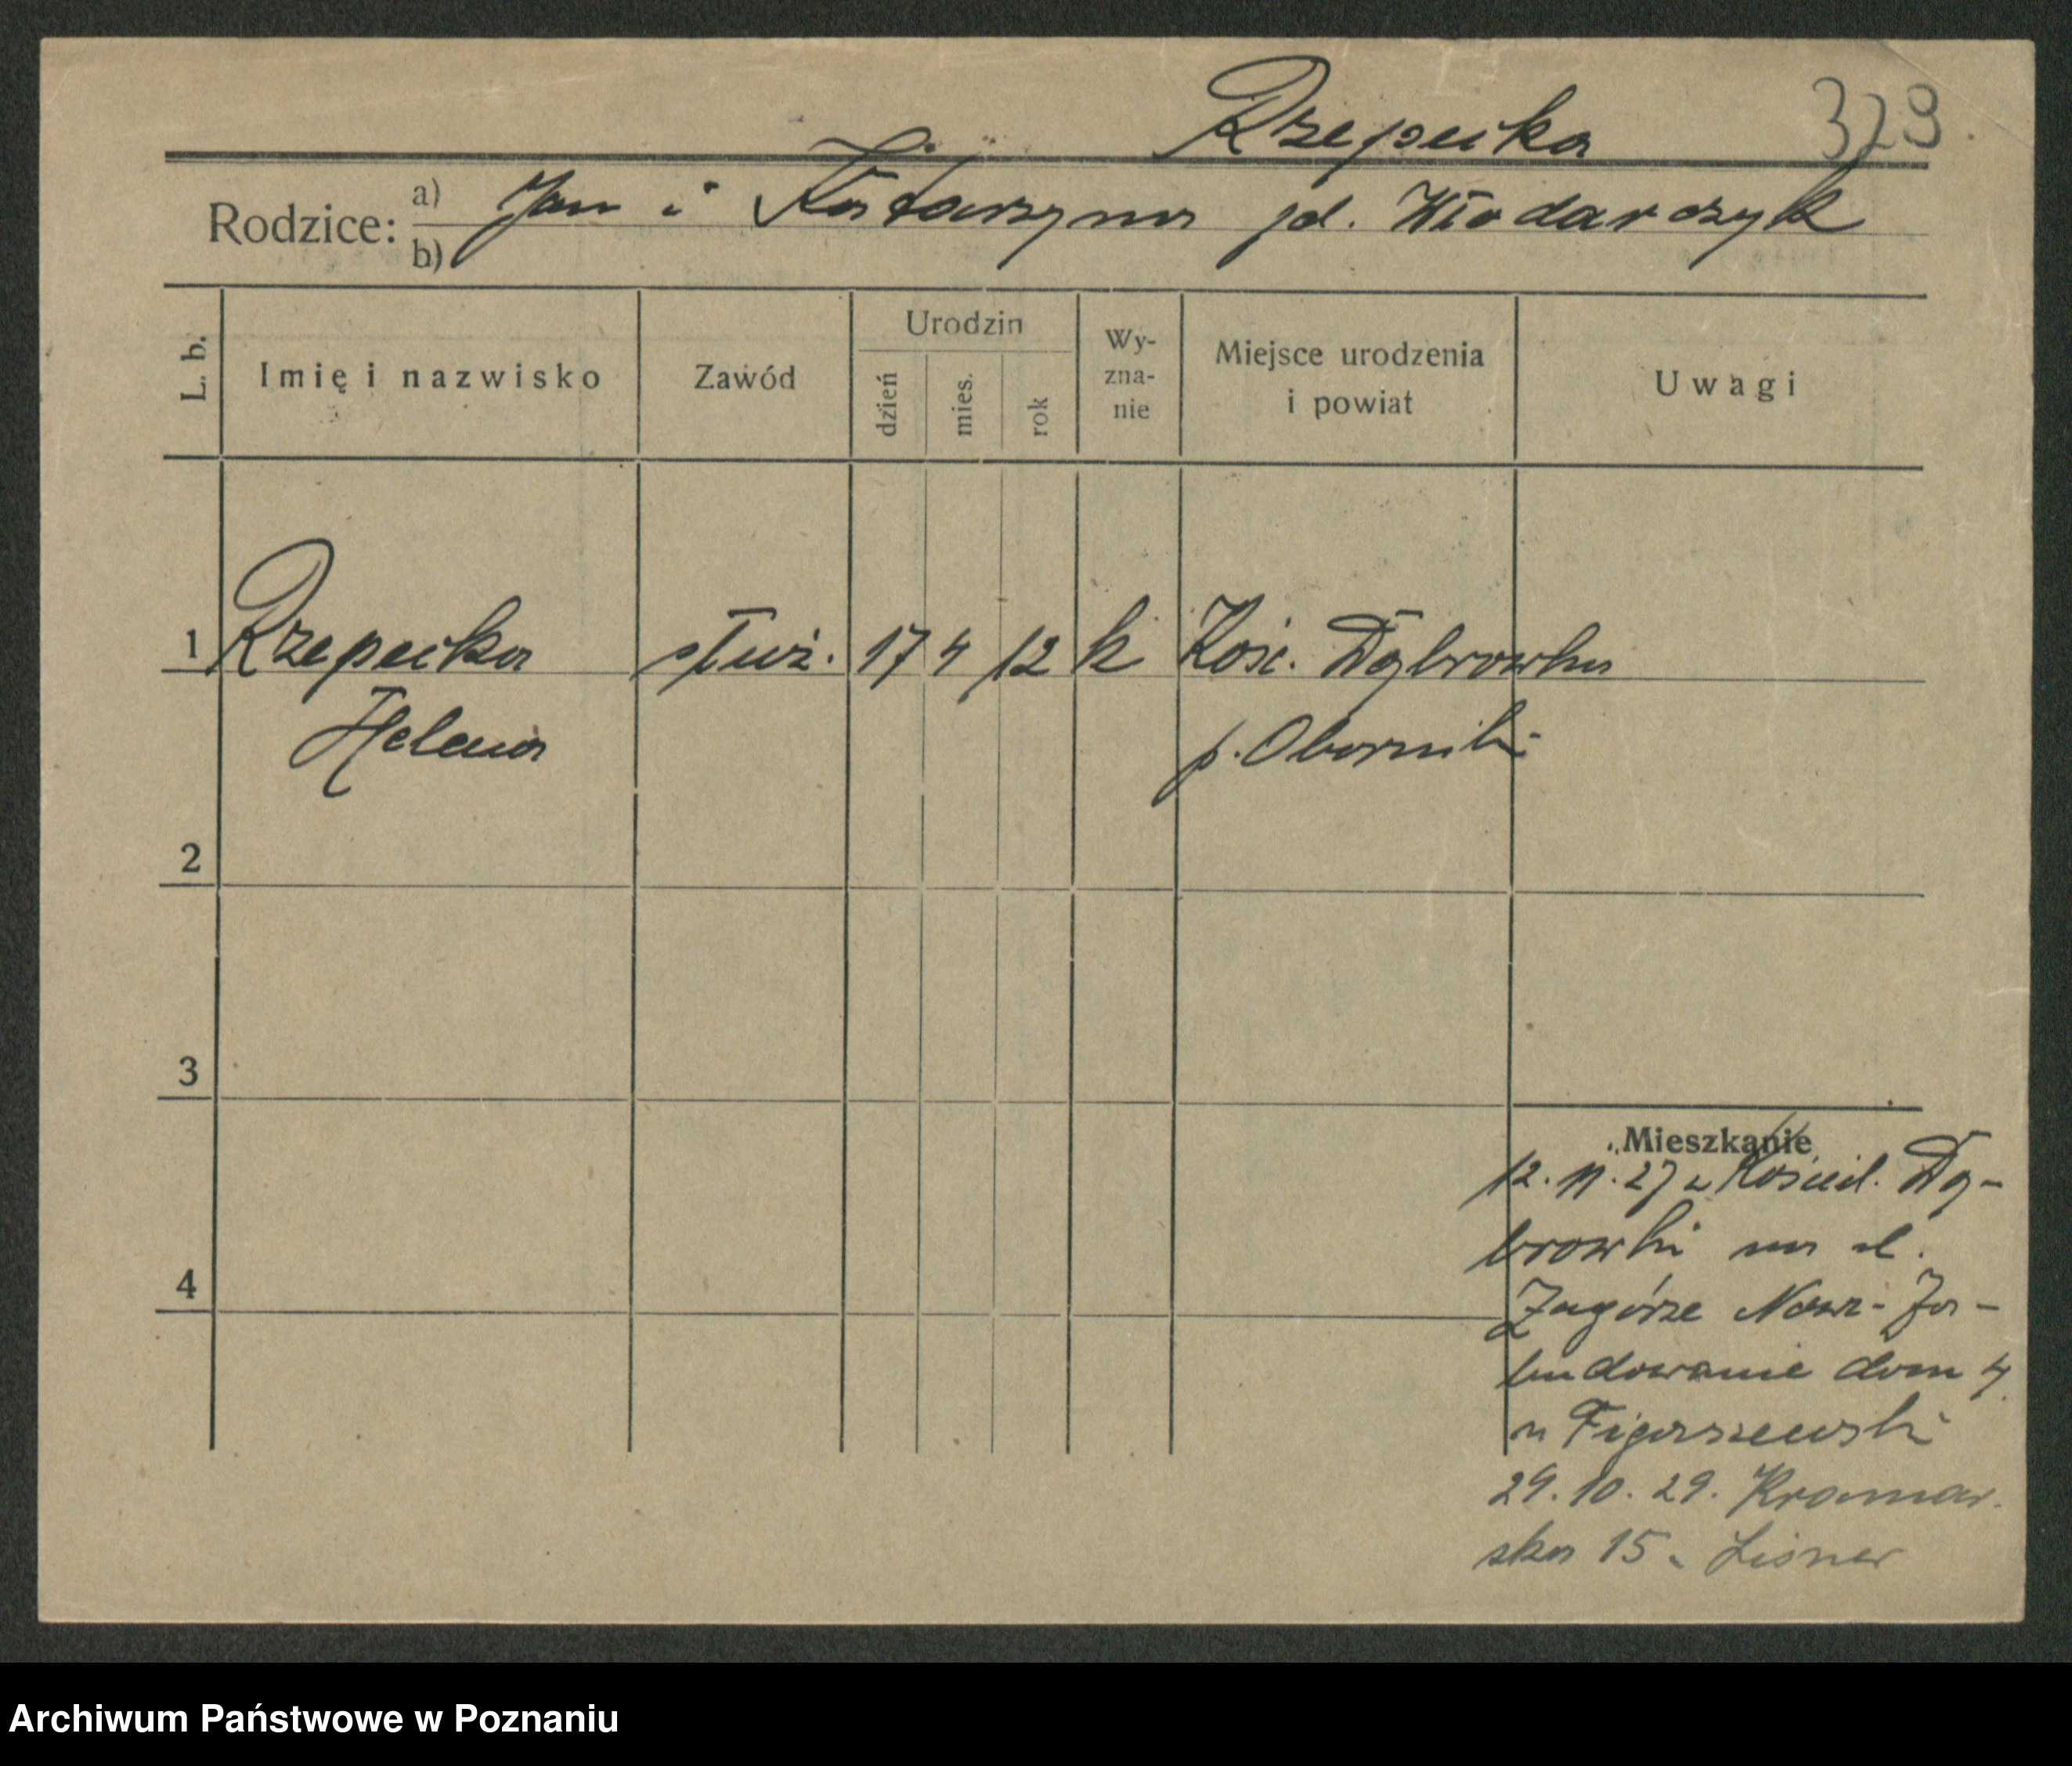 Rzepecka 329.
Rodzice: a) b) Jan i Katarzyna jd. Włodarczyk
L. b. Imię i nazwisko Zawód Urodzin dzień mies. rok Wy-zna-nie Miejsce urodzenia i powiat Uwagi
1 Rzepecka służ. 17 4 12 k Kośc. Dąbrowka
Helena p. Oborniki
2
3
Mieszkanie
12. 11. 27 z Kościel. Dą-
browki na
4
Zagórze Nowe-Za-
budowanie dom 4
u Figaszewski
29. 10. 29. Kramar.
ska 15 Lisner
Archiwum Państwowe w Poznaniu